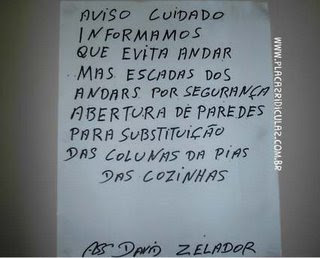 AVISO CUIDADO
INFORMAMOS
QUE EVITA ANDAR
MAS ESCADAS DOS
ANDARS POR SEGURANÇA
ABERTURA DE PAREDES
PARA SUBSTITUIÇÃO
DAS COLUNAS DA PIAS
DAS COZINHAS
ASS DAVID ZELADOR
WWW.PLACAZRIDICULAZ.COM.BR